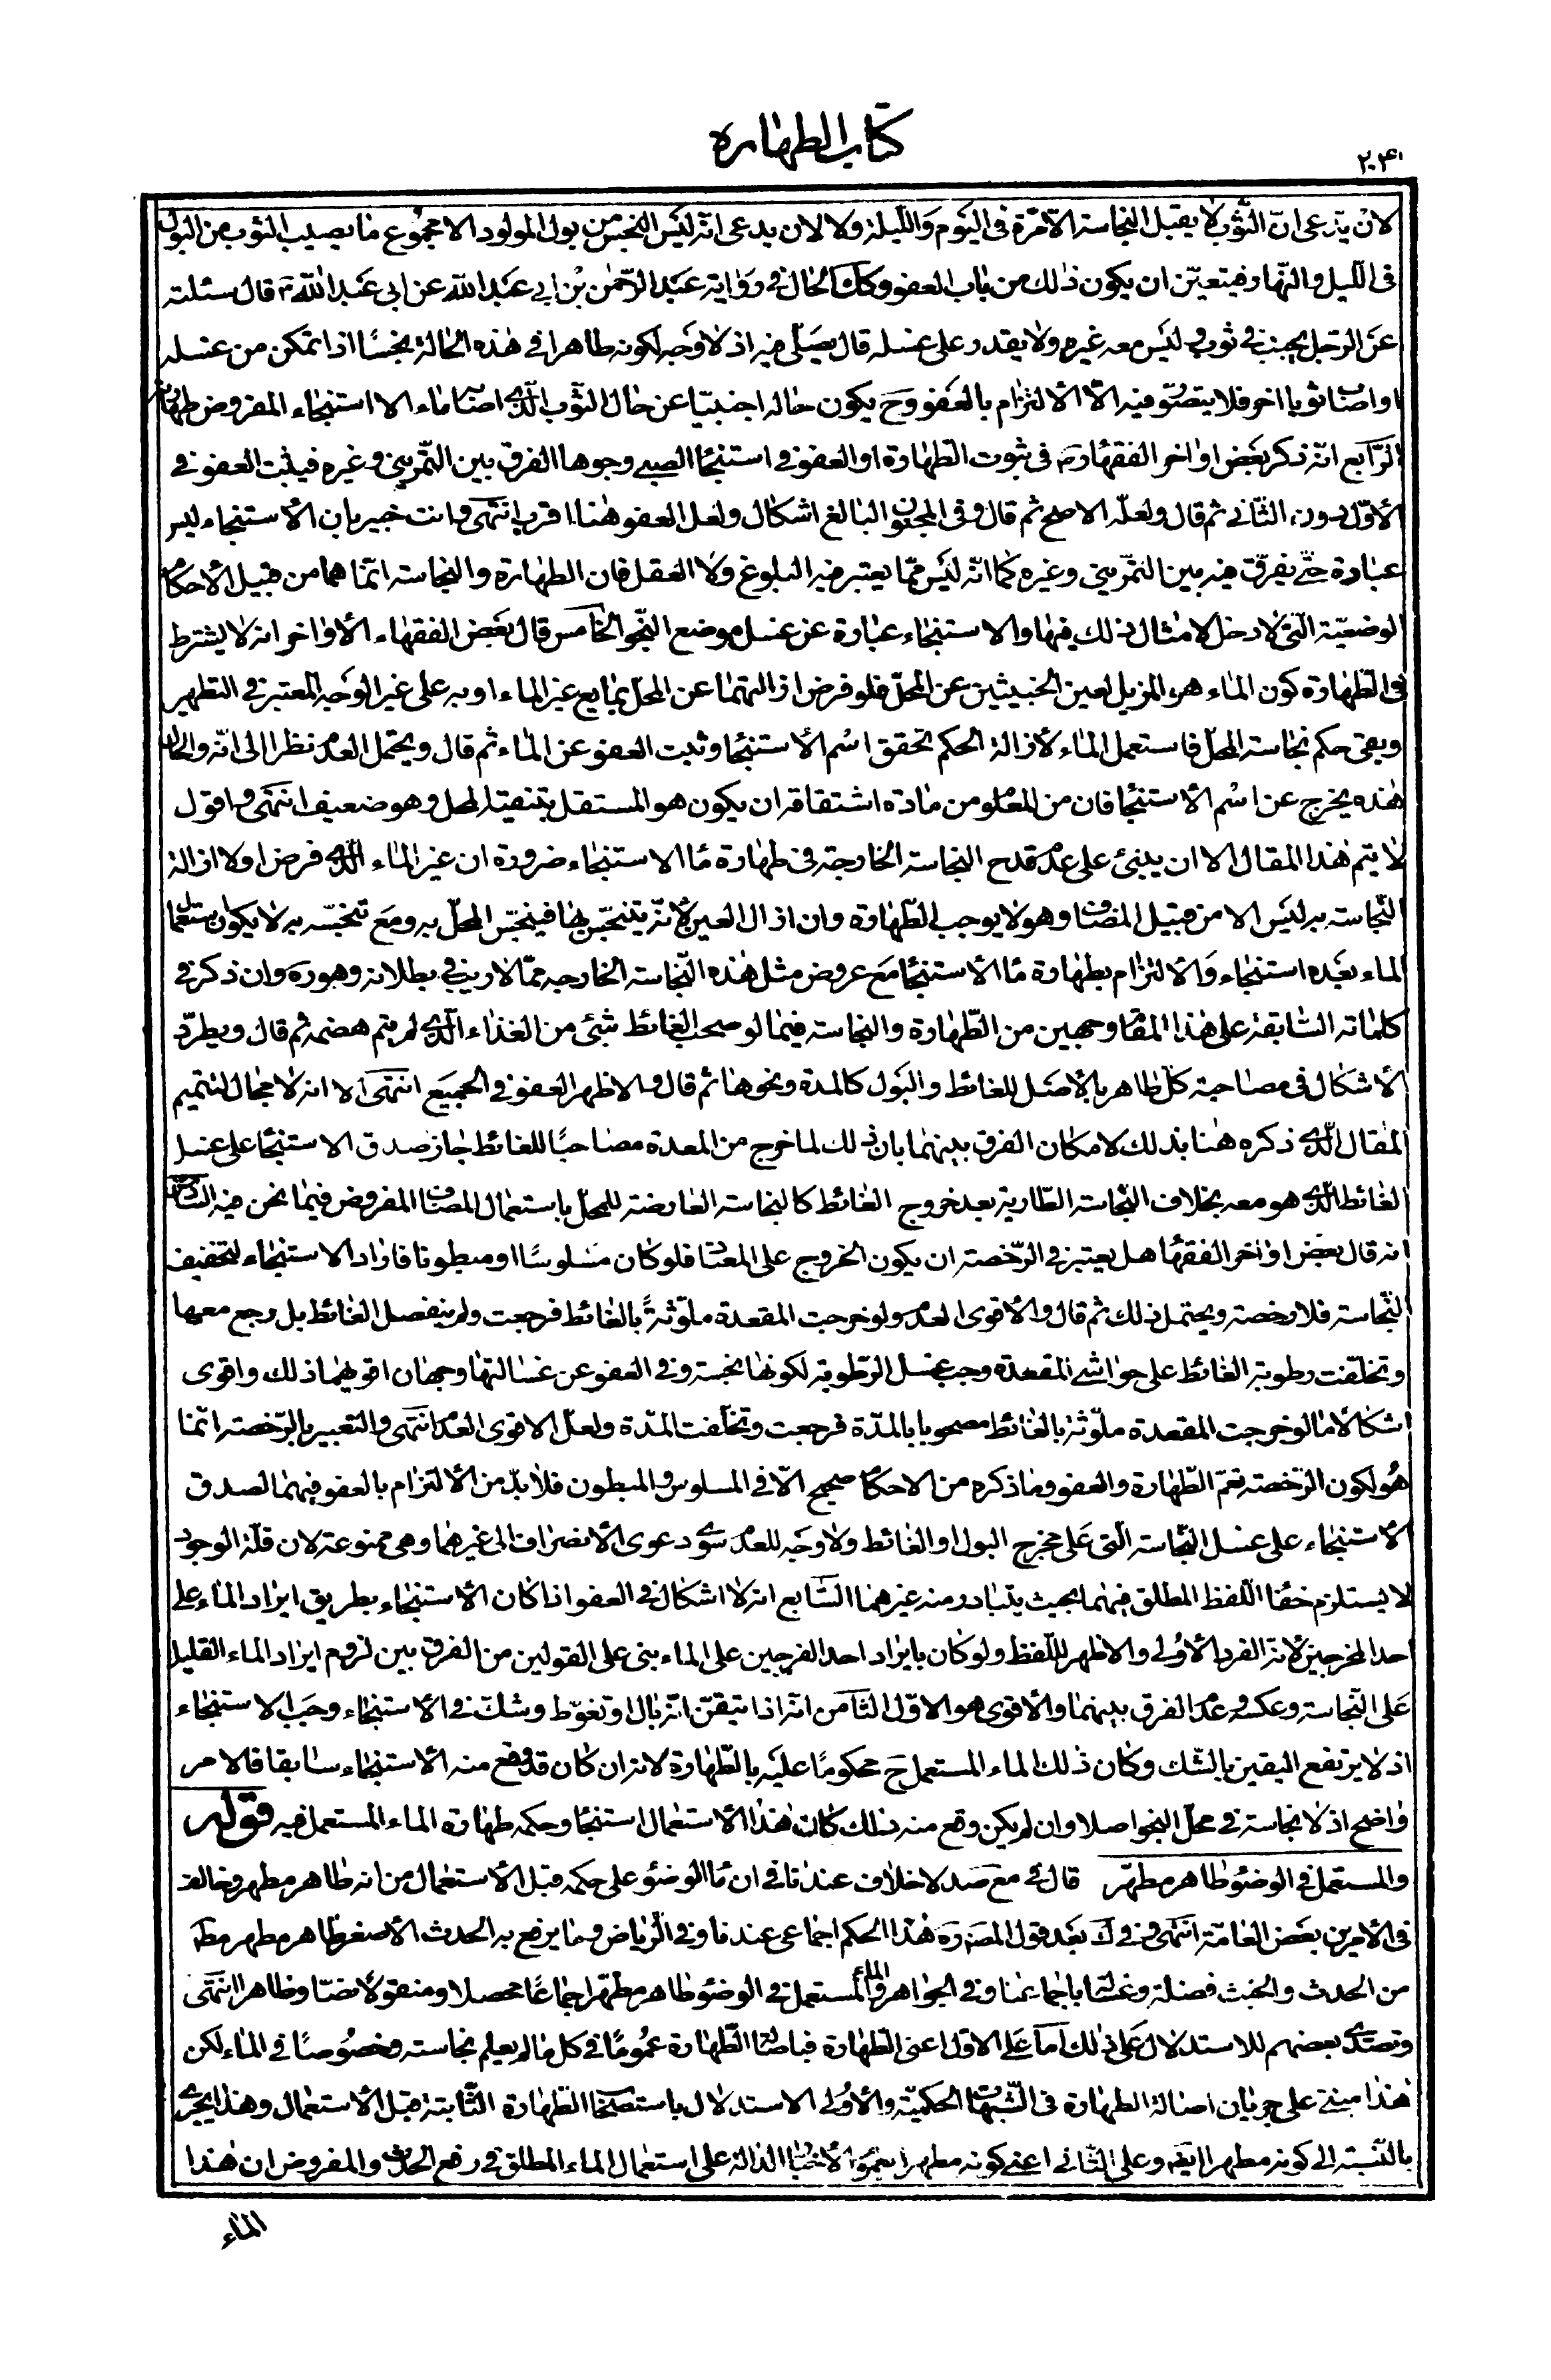 كتاب الطهارة
٢٠٤
لان يدّعى انّ الثّوب لا يقبل النجاسة الّا مرّة فى اليَوم وَاللّيلة ولا لان يدعى انّه ليَس النجس من بول المولود الا مجمُوع مٰا يصيب الثوب من البول
فى اللّيل والنّهار فيتعيّن ان يكون ذٰلك من بٰاب العفو وكك الحٰال فى روٰاية عَبد الرّحمٰن بْن ابى عَبد اللّه عن ابى عَبد اللّه ع قال سئلته
عنَ الرّجل يجنب فى ثوب ليَس معه غيره ولا يقدر على غسله قال يصَلّى فيه اذ لا وَجه لكونه طاهرا فى هٰذه الحٰالة نجسًا اذا تمكن من غسله
او اصٰاب ثوبا اخر فلا يتصوّر فيه الّا الالتزٰام بالعَفو وحَ يكون حٰاله اجنبيّا عن حٰال الثوب الّذى اصٰابه مٰاء الاستنجٰاء المفروض طهارته
الرّابع انّه ذكر بعَض اوٰاخر الفقهٰاء ره فى ثبوت الطّهٰارة او العفو فى استنجٰاء الصبى وجوها الفرق بين التّمرينى وغيره فيثبت العفو فى
الأوّل دون الثّانى ثم قال ولعلّه الاصح ثم قال وفى المجنون البٰالغ اشكٰال ولعل العفو هنٰا اقرب انتهى وانت خبير بان الاستنجٰاء ليس
عبٰادة حتّى يفرّق فيه بين التمّرينى وغيره كمٰا انّه ليَس ممّا يعتبر فيه البلوغ ولا العقل فان الطهٰارة والنجٰاسة انّما هما من قبيل الأحكام
الوضعيّة الّتى لا دخل لامثٰال ذلك فيهٰا والاستنجٰاء عبٰارة عن غسل موضع النّجو الخٰامس قال بعَض الفقهٰاء الأوٰاخر انه لا يشترط
فى الطّهٰارة كون المٰاء هو المزيل لعين الخبيثين عن المحلّ فلو فرض ازالتهمٰا عن المحلّ بمٰايع غير المٰاء او به على غير الوَجه المعتبر فى التطهير
وبقى حكم نجٰاسة المحلّ فاستعمل المٰاء لازالة الحكم تحقق اسْم الأستنجٰاء وثبت العفو عن المٰاء ثم قال ويحتمل العدم نظرا الى انّه والحال
هٰذه يخرج عن اسْم الأستنجٰاء فان من المعلوم من مٰادة اشتقاقه ان يكون هو المستقل بتنقية المحل وهو ضعيف انتهى واقول
لا يتم هٰذا المقال الا ان يبنى على عدم قدح النجاسة الخارجة فى طهٰارة مٰاء الاستنجٰاء ضرورة ان غير المٰاء الّذى فرض اولا ازالة
النّجاسة به ليَس الا من قبيل المضٰاف وهو لا يوجب الطّهٰارة وان ازال العين لأنّه يتنجّس بهٰا فينجّس المحلّ به ومَع تنجّسه به لا يكون استعمال
المٰاء بعَده استنجٰاء وَالألتزٰام بطهٰارة مٰاء الأستنجٰاء مَع عروض مثل هٰذه النّجاسة الخارجيه ممّا لا ريب فى بطلانه وهو ره وان ذكر فى
كلمٰاته السّٰابقة على هٰذا المقٰام وجهين من الطّهٰارة والنجاسة فيمٰا لو صحب الغٰائط شئ من الغذٰاء الّذى لم يتم هضمه ثم قال ويطرّد
الاشكٰال فى مصٰاحبة كلّ طٰاهر بالأصَل للغٰائط والبَول كالمدة ونحوهٰا ثم قال والاظهر العفو فى الجميَع انتهى الا انه لا مجٰال لتتميم
المقٰال الّذى ذكره هنٰا بذلك لامكٰان الفرق بينهمٰا بان ذلك لما خرج من المعدة مصٰاحبًا للغٰائط جٰاز صدق الاستنجٰاء على غسل
الغٰائط الّذى هو معه بخلاف النّجٰاسة الطّارية بعد خروج الغٰائط كالنجاسة العٰارضة للمحلّ باستعمٰال المضٰاف المفروض فيمٰا نحن فيه السّٰادس
انه قال بعَض اوٰاخر الفقهٰاء هل يعتبر فى الرّخصة ان يكون الخروج على المعتٰاد فلو كان مَسْلوسًا او مبطونا فارٰاد الاستنجٰاء لتخفيف
النّجٰاسة فلا رخصة ويحتمل ذلك ثم قال والأقوى العدم ولو خرجت المقعدة ملوّثةً بالغٰائط فرجعت ولم ينفصل الغٰائط بل رجع معهٰا
وتخلّفت رطوبة الغٰائط على حوٰاشى المقعدة وجب غسل الرّطوبة لكونهٰا نجسة وفى العفو عن غسٰالتهٰا وجهٰان اقويهمٰا ذلك واقوى
اشكٰالا مٰا لو خرجت المقعدة ملوّثة بالغٰائط مصحوبا بالمدّة فرجعت وتخلّفت المدّة ولعلّ الاقوى العدم انتهى والتعبير بالرّخصة انّمٰا
هُو لكون الرّخصة تعمّ الطّهٰارة والعفو ومٰا ذكره من الاحكٰام صحيح الّا فى المسلوس والمبطون فلا بدّ من الألتزٰام بالعفو فيهمٰا لصدق
الأستنجٰاء على غسل النّجٰاسة الّتى عَلى مخرج البول او الغٰائط ولا وجَه للعدم سوى دعوى الأنصرٰاف الى غيرهمٰا وهى ممنوعة لان قلّة الوجود
لا يستلزم خفٰاء اللّفظ المطلق فيهمٰا بحيث يتبٰادر منه غيرهمٰا السّٰابع انه لا اشكٰال فى العفو اذا كٰان الأستنجٰاء بطريق ايرٰاد المٰاء على
احد المخرجين لأنّه الفرد الأوْلى والاظهر للّفظ ولو كٰان بايرٰاد احد الفرجين على المٰاء بنى على القولين من الفرق بين لزوم ايرٰاد المٰاء القليل
عَلى النّجٰاسة وعكسه وعدم الفرق بينهمٰا والأقوى هو الاوّل الثّٰامن انّه اذا تيقّن انّه بٰال او تغوّط وشكّ فى الأستنجٰاء وجَب الاستنجٰاء
اذ لا يرتفع اليقين بالشّك وكٰان ذٰلك المٰاء المستعمل حَ محكومًا عليَه بالطّهٰارة لانه ان كٰان قد وقع منه الأستنجٰاء سٰابقا فالامر
وٰاضح اذ لا نجٰاسة فى محلّ النجو اصلا وان لم يكن وقع منه ذلك كٰان هٰذا الأستعمٰال استنجٰاء وحكمه طهٰارة المٰاء المستعمل فيه قوله
والمستعمل فى الوضوء طٰاهر مطهّر قال فى مع صد لا خلاف عندنٰا فى ان مٰاء الوضوء على حكمه قبل الأستعمٰال من انه طٰاهر مطهر وخالف
فى الأمرين بعَض العٰامّة انتهى وفى ك بعَد قول المصنّف ره هٰذا الحكم اجمٰاعى عندنٰا وفى الرّيٰاض ومٰا يرفع به الحدث الأصغر طٰاهر مطهر مطلقا
من الحدث والخبث فضلة وغسٰالة باجمٰاعنٰا وفى الجوٰاهر والمٰاء المستعمل فى الوضوء طٰاهر مطهّر اجمٰاعًا محصلا ومنقولا نصّا وظٰاهرا انتهى
وتصدّى بعضهم للاستدلال عَلى ذٰلك امّا عَلى الاوّل اعنى الطّهٰارة فباصٰالة الطّهٰارة عمُومًا فى كل مٰا لم يعلم نجٰاسته وخصُوصًا فى المٰاء لكن
هٰذا مبنى على جريٰان اصٰالة الطهٰارة فى الشّبهٰات الحكميّة والأوْلى الاستدلال باستصحٰاب الطّهٰارة الثّابتة قبل الأستعمٰال وهذا يجرى
بالنّسبة الى كونه مطهرا ايضا وعلى الثّانى اعنى كونه مطهرا بعموم الأخبٰار الدٰالة على استعمٰال المٰاء المطلق فى رفع الحدث والمفروض ان هٰذا
المٰاء